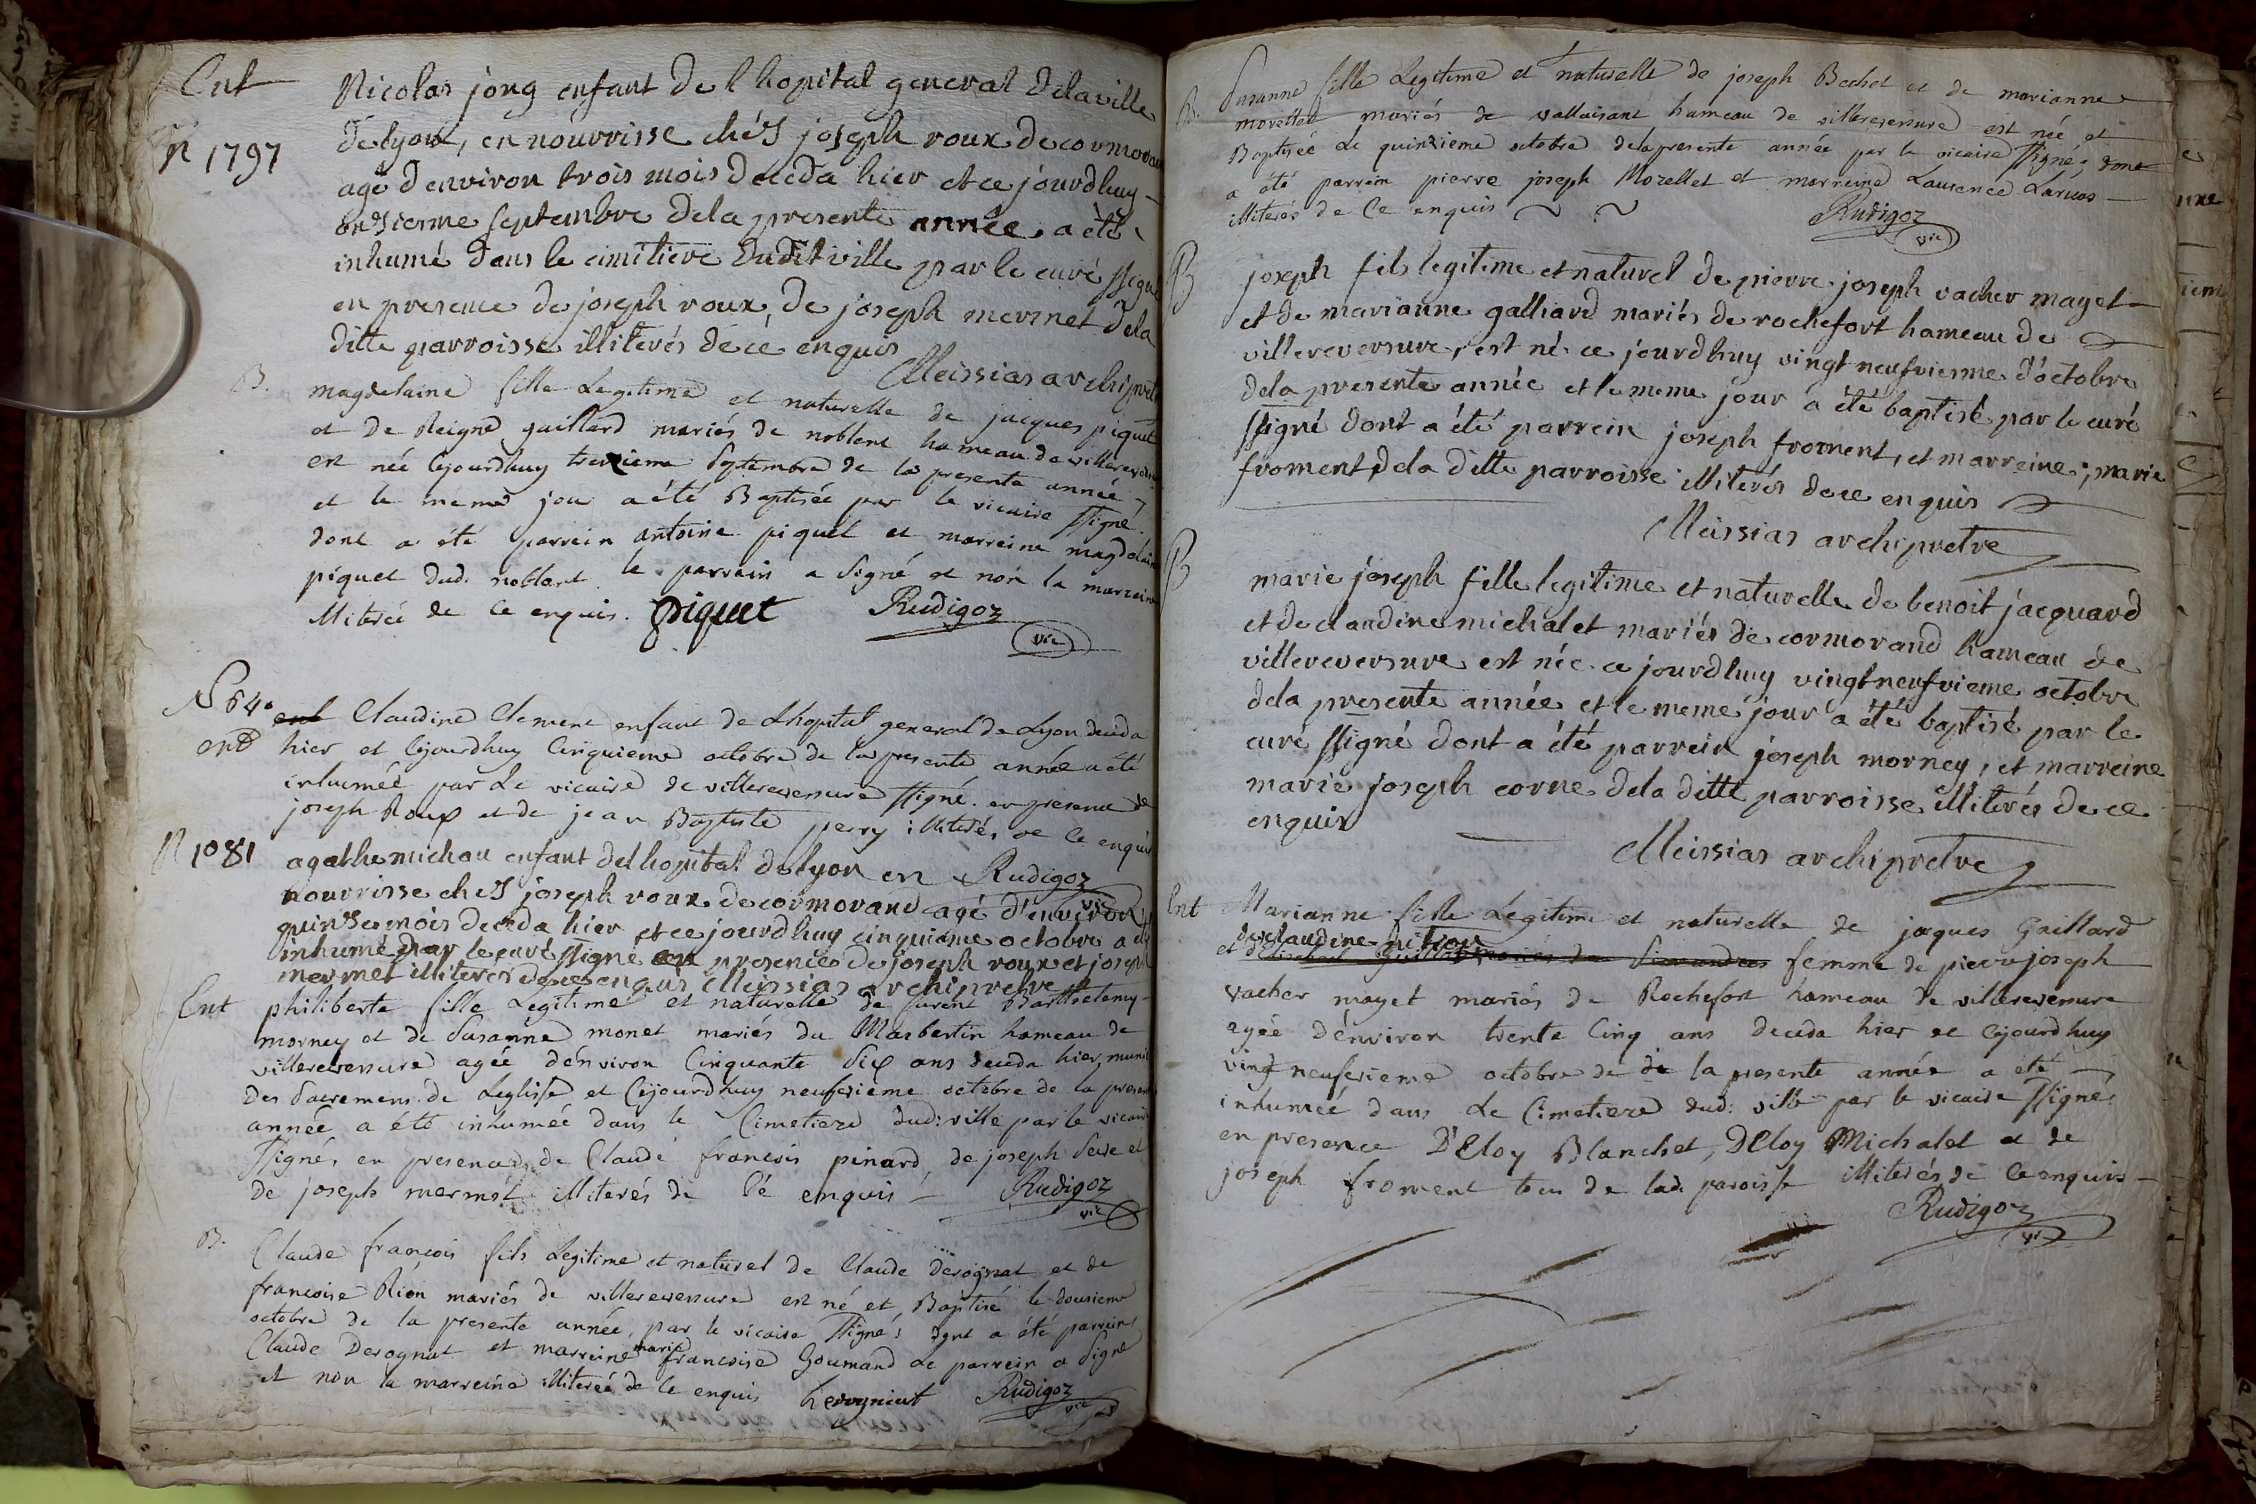 Ent Nicolas jong enfant De l hopital general Delaville
N 1797 de lyon, en nourrisse chés joseph roux de cormoran
agé d'environ trois mois deceda hier et ce jourdhuy
onsieme septembre dela presente année a été
inhumé dans le cimitiere dudit ville par le curé ssigné
en presence de joseph roux, de joseph mermet dela
ditte parroisse illiterés de ce enquis
Meissias archiprete
B. magdelaine fille Legitime et naturelle de jacques piquet
et de Reigne gaillard mariés de noblent hameau de villerev
est née cejourdhuy trezieme septembre de la presente année
et le meme jou a été Baptisée par le vicaire ssigné
dont a été parrein antoine piquet et marreine magdelaine
piquet dud. noblent le parrein a signé et non la marreine
illiterée de ce enquis. piquet Rudigoz
vic
N 640 ent Claudine Clement enfant de L'hopital general de Lyon deceda
ent hier et cejourdhuy cinquieme octobre de la presente année a été
inhumée par Le vicaire de villereversure ssigné en presence de
joseph Roux et de jean Baptiste perry illiterés de ce enquis
N 1081 agathe michau enfant del hopital de lyon en Rudigoz
vic
nourrisse chés joseph roux de cormorand agé d'environ
quinse mois deceda hier et ce jourdhuy cinquieme octobre a été
inhumé par le curé ssigné en presence de joseph roux et joseph
mermet illiterés de ce enquis Meissias archipretre
Ent philiberte fille Legitime et naturelle de furent Barthelemy
morney et de Susanne monet mariés du Masbertin hameau de
villereversure agée d'environ Cinquante Six ans deceda hier, munie
des Sacremens de Leglisse et Cejourdhuy neufvieme octobre de la presente
année a été inhumée dans le Cimetiere dud: ville par le vicaire
ssigné, en presence de Claude francois pinard, de joseph Seve et
de joseph mermet illiterés de Ce enquis Rudigoz
vic
B. Claude françois fils Legitime et naturel de Claude Derognat et de
françoise Rion mariés de villereversure est né et Baptisé le dousieme
octobre de la presente année par le vicaire ssigné; dont a été parrein
Claude Derognat et marreine marie francoise Goumand Le parrein a Signé
et non la marreine illiterée de Ce enquis Derognat Rudigoz
vic
B. Susanne fille Legitime et naturelle de joseph Bechet et de marianne
morellet mariés de vallaisant hameau de villereversure est née et
Baptisée Le quinzieme octobre dela presente année par le vicaire ssigné; dont
a été parrein pierre joseph Morellet et marreine Laurence Larcos
illiterés de Ce enquis Rudigoz
vic
B joseph fils legitime et naturel de pierre joseph vacher mayet
et de marianne galliard mariés de rochefort hameau de
villereversure, est né ce jourdhuy vingt neufvieme d'octobre
dela presente année et le meme jour a été baptisé par le curé
ssigné dont a été parrein joseph froment, et marreine, marie
froment, dela ditte parroisse illiterés de ce enquis
Meissias archipretre
B marie joseph fille legitime et naturelle de benoit jacquard
et de claudine michalet mariés de cormorand hameau de
villereversure est née ce jourdhuy vingt neufvieme octobre
dela presente année et le meme jour a été baptisé par le
curé ssigné dont a été parrein joseph morney, et marreine
marie joseph corne dela ditte parroisse illiterés de ce
enquis
Meissias archipretre
Ent Marianne fille Legitime et naturelle de jaques Gaillard
de claudine
et femme de pierre joseph
vacher mayet mariés de Rochefort hameau de villereversure
agée d'environ trente Cinq ans deceda hier et cejourdhuy
vingt neufvieme octobre de de la presente année a été
inhumée dans Le Cimetiere dud: ville par le vicaire ssigné;
en presence D'Eloy Blanchet, D'Eloy Michalet et de
joseph froment tous de lad. paroisse illiterés de Ce enquis
Rudigoz
vic